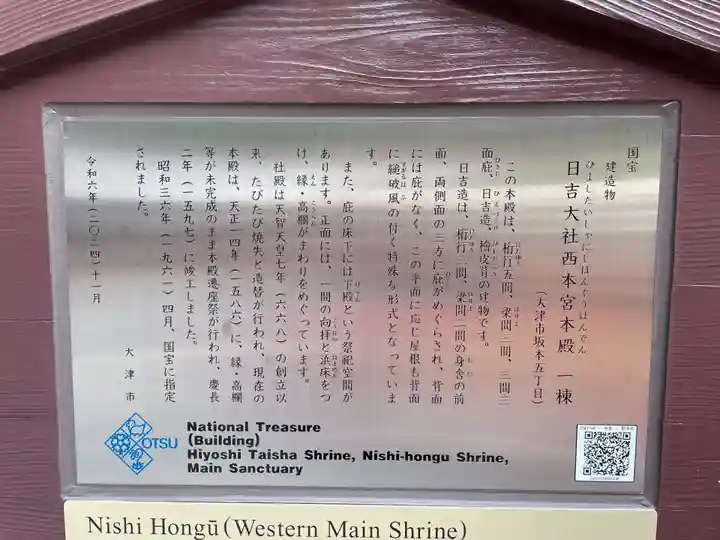 国宝
建造物
ひよしたいしゃにしほんぐうほんでん
日吉大社西本宮本殿 一棟
(大津市坂本五丁目)
この本殿は、桁行五間、梁間三間、三間三
面庇、日吉造、檜皮葺の建物です。
日吉造は、桁行三間、梁間二間の身舎の前
面、両側面の三方に庇がめぐらされ、背面
には庇がなく、この平面に応じ屋根も背面
に縋破風の付く特殊な形式となっていま
す。
また、庇の床下には下殿という祭祀空間が
あります。正面には、一間の向拝と浜床をつ
け、縁・高欄がまわりをめぐっています。
社殿は天智天皇七年(六六八)の創立以
来、たびたび焼失と造替が行われ、現在の
本殿は、天正一四年(一五八六)に、縁・高欄
等が未完成のまま本殿遷座祭が行われ、慶長
二年(一五九七)に竣工しました。
昭和三六年(一九六一)四月、国宝に指定
されました。
令和六年(二〇二四)十一月
大津市
OTSU
National Treasure
(Building)
Hiyoshi Taisha Shrine, Nishi-hongu Shrine,
Main Sanctuary
Nishi Hongū (Western Main Shrine)